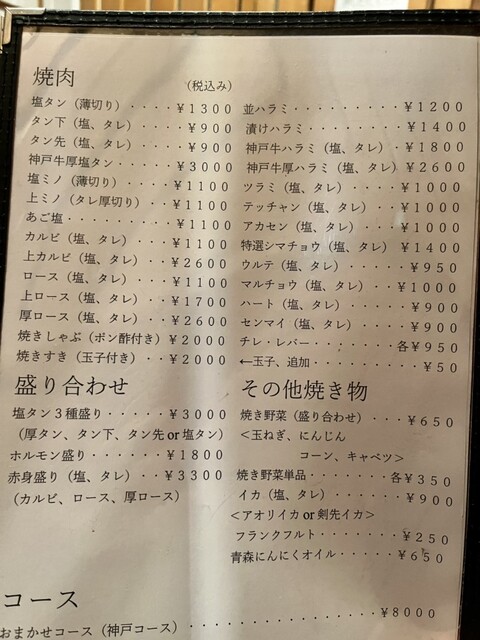 焼肉
(税込み)
塩タン（薄切り）・・・・¥１３００
タン下（塩、タレ）・・・・¥９００
タン先（塩、タレ）・・・・¥９００
神戸牛厚塩タン・・・・¥３０００
塩ミノ（薄切り）・・・・¥１１００
上ミノ（タレ厚切り）・・・¥１１００
あご塩・・・・・・・・・¥１１００
カルビ（塩、タレ）・・・¥１１００
上カルビ（塩、タレ）・・¥２６００
ロース（塩、タレ）・・・¥１１００
上ロース（塩、タレ）・・¥１７００
厚ロース（塩、タレ）・・¥２６００
焼きしゃぶ（ポン酢付き）¥２０００
焼きすき（玉子付き）・・¥２０００
盛り合わせ
塩タン３種盛り・・・・・¥３０００
（厚タン、タン下、タン先 or 塩タン）
ホルモン盛り・・・・・・¥１８００
赤身盛り（塩、タレ）・・¥３３００
（カルビ、ロース、厚ロース）
並ハラミ・・・・・・・・・¥１２００
漬けハラミ・・・・・・・・¥１４００
神戸牛ハラミ（塩、タレ）・¥１８００
神戸牛厚ハラミ（塩、タレ）¥２６００
ツラミ（塩、タレ）・・・・¥１０００
テッチャン（塩、タレ）・・¥１０００
アカセン（塩、タレ）・・・¥１０００
特選シマチョウ（塩、タレ）¥１４００
ウルテ（塩、タレ）・・・・・¥９５０
マルチョウ（塩、タレ）・・¥１０００
ハート（塩、タレ）・・・・・¥９００
センマイ（塩、タレ）・・・・¥９００
チレ・レバー・・・・・・・各¥９５０
←玉子、追加・・・・・・・・・¥５０
その他焼き物
焼き野菜（盛り合わせ）・・・¥６５０
＜玉ねぎ、にんじん
コーン、キャベツ＞
焼き野菜単品・・・・・・・各¥３５０
イカ（塩、タレ）・・・・・・¥９００
＜アオリイカ or 剣先イカ＞
フランクフルト・・・・・・・¥２５０
青森にんにくオイル・・・・・¥６５０
コース
おまかせコース（神戸コース）・・・・・・・・・・・・・・¥８０００